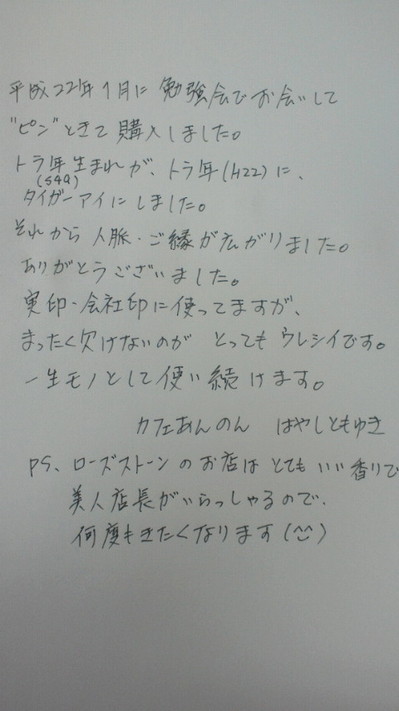 平成22年1月に勉強会でお会いして
"ピン"ときて購入しました。
トラ年生まれが、トラ年(H22)に、
(S49)
タイガーアイにしました。
それから人脈・ご縁が広がりました。
ありがとうございました。
実印・会社印に使ってますが、
まったく欠けないのが とっても ウレシイです。
一生モノとして使い続けます。
カフェあんのん はやしともゆき
PS、ローズストーンのお店は とても いい香りで
美人店長がいらっしゃるので、
何度もきたくなります(^^)